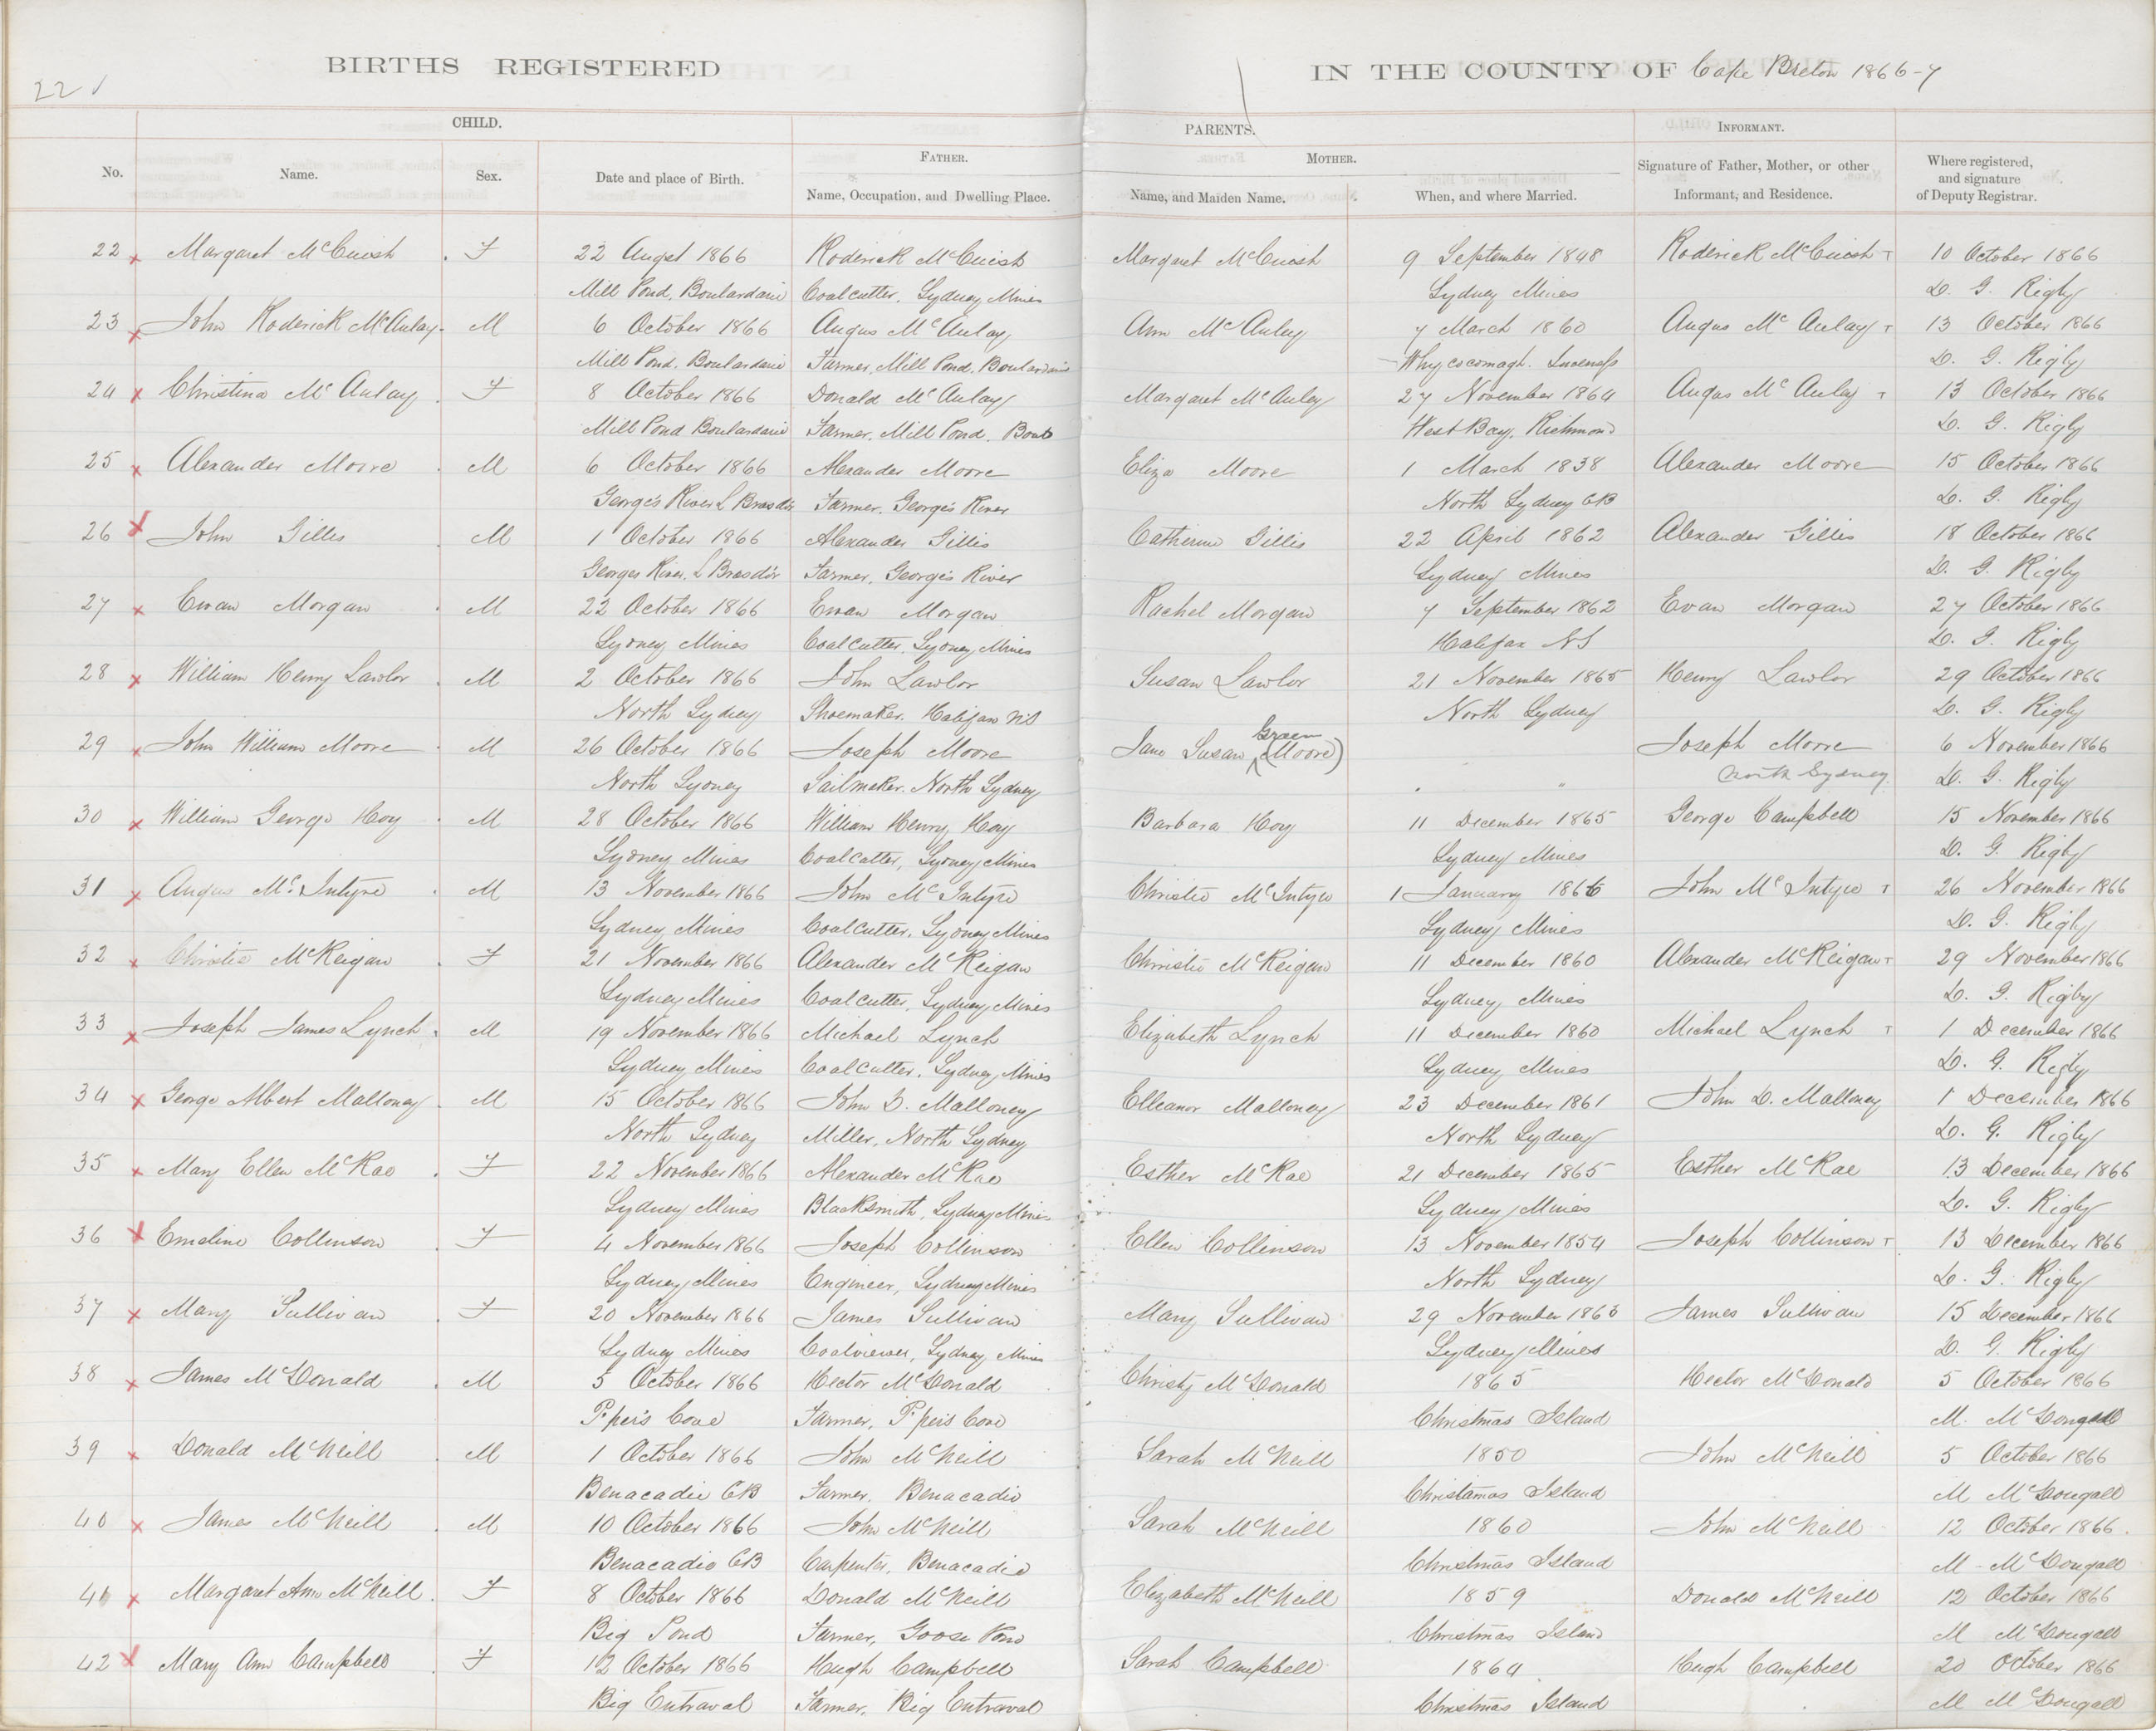 BIRTHS REGISTERED IN THE COUNTY OF Cape Breton 1866-7
22
CHILD. PARENTS. INFORMANT.
No. Name. Sex. Date and place of Birth. FATHER. Name, Occupation, and Dwelling Place. MOTHER. Name, and Maiden Name. When, and where Married. Signature of Father, Mother, or other Informant, and Residence. Where registered, and signature of Deputy Registrar.
22 Margaret McCuish F 22 Augst 1866 Roderick McCuish Margaret McCuish 9 September 1848 Roderick McCuish 10 October 1866
Mill Pond, Boulardarie Coalcutter, Sydney Mines Sydney Mines D. G. Rigby
23 John Roderick McAulay M 6 October 1866 Angus McAulay Ann McAuley 7 March 1860 Angus McAulay 13 October 1866
Mill Pond, Boulardarie Farmer, Mill Pond, Boulardarie Whycocomagh. Inverness D. G. Rigby
24 Christina McAulay F 8 October 1866 Donald McAulay Margaret McAuley 27 November 1864 Angus McAulay 13 October 1866
Mill Pond Boulardarie Farmer, Mill Pond, Boul West Bay, Richmond D. G. Rigby
25 Alexander Moore M 6 October 1866 Alexander Moore Eliza Moore 1 March 1838 Alexander Moore 15 October 1866
George's River L Brasdor Farmer, George's River North Sydney CB D. G. Rigby
26 John Gillis M 1 October 1866 Alexander Gillis Catherine Gillis 22 April 1862 Alexander Gillis 18 October 1866
Georges River, L Brasdor Farmer, George's River Sydney Mines D. G. Rigby
27 Evan Morgan M 22 October 1866 Evan Morgan Rachel Morgan 7 September 1862 Evan Morgan 27 October 1866
Sydney Mines Coalcutter, Sydney Mines Halifax NS D. G. Rigby
28 William Henry Lawlor M 2 October 1866 John Lawlor Susan Lawlor 21 November 1865 Henry Lawlor 29 October 1866
North Sydney Shoemaker. Halifax NS North Sydney D. G. Rigby
29 John William Moore M 26 October 1866 Joseph Moore Jane Susan Green (Moore) Joseph Moore 6 November 1866
North Sydney Sailmaker. North Sydney " North Sydney D. G. Rigby
30 William George Hoy M 28 October 1866 William Henry Hoy Barbara Hoy 11 December 1865 George Campbell 15 November 1866
Sydney Mines Coalcutter, Sydney Mines Sydney Mines D. G. Rigby
31 Angus McIntyre M 13 November 1866 John McIntyre Christie McIntyre 1 January 1866 John McIntyre 26 November 1866
Sydney Mines Coalcutter, Sydney Mines Sydney Mines D. G. Rigby
32 Christie McKeigan F 21 November 1866 Alexander McKeigan Christie McKeigan 11 December 1860 Alexander McKeigan 29 November 1866
Sydney Mines Coalcutter, Sydney Mines Sydney Mines D. G. Rigby
33 Joseph James Lynch M 19 November 1866 Michael Lynch Elizabeth Lynch 11 December 1860 Michael Lynch 1 December 1866
Sydney Mines Coalcutter, Sydney Mines Sydney Mines D. G. Rigby
34 George Albert Malloney M 15 October 1866 John D. Malloney Elleanor Malloney 23 December 1861 John D. Malloney 1 December 1866
North Sydney Miller, North Sydney North Sydney D. G. Rigby
35 Mary Ellen McRae F 22 November 1866 Alexander McRae Esther McRae 21 December 1865 Esther McRae 13 December 1866
Sydney Mines Blacksmith, Sydney Mines Sydney Mines D. G. Rigby
36 Emeline Collinson F 4 November 1866 Joseph Collinson Ellen Collinson 13 November 1854 Joseph Collinson 13 December 1866
Sydney Mines Engineer, Sydney Mines North Sydney D. G. Rigby
37 Mary Sullivan F 20 November 1866 James Sullivan Mary Sullivan 29 November 1863 James Sullivan 15 December 1866
Sydney Mines Coalviewer, Sydney Mines Sydney Mines D. G. Rigby
38 James McDonald M 5 October 1866 Hector McDonald Christy McDonald 1865 Hector McDonald 5 October 1866
Piper's Cove Farmer, Piper's Cove Christmas Island M. McDougall
39 Donald McNeill M 1 October 1866 John McNeill Sarah McNeill 1850 John McNeill 5 October 1866
Benacadie CB Farmer, Benacadie Christamas Island M McDougall
40 James McNeill M 10 October 1866 John McNeill Sarah McNeill 1860 John McNeill 12 October 1866.
Benacadie CB Carpenter, Benacadie Christmas Island M McDougall
41 Margaret Ann McNeill F 8 October 1866 Donald McNeill Elizabeth McNeill 1859 Donald McNeill 12 October 1866
Big Pond Farmer, Goose Pond Christmas Island M McDougall
42 Mary Ann Campbell F 12 October 1866 Hugh Campbell Sarah Campbell 1864 Hugh Campbell 20 October 1866
Big Entraval Farmer, Big Entraval Christmas Island M McDougall